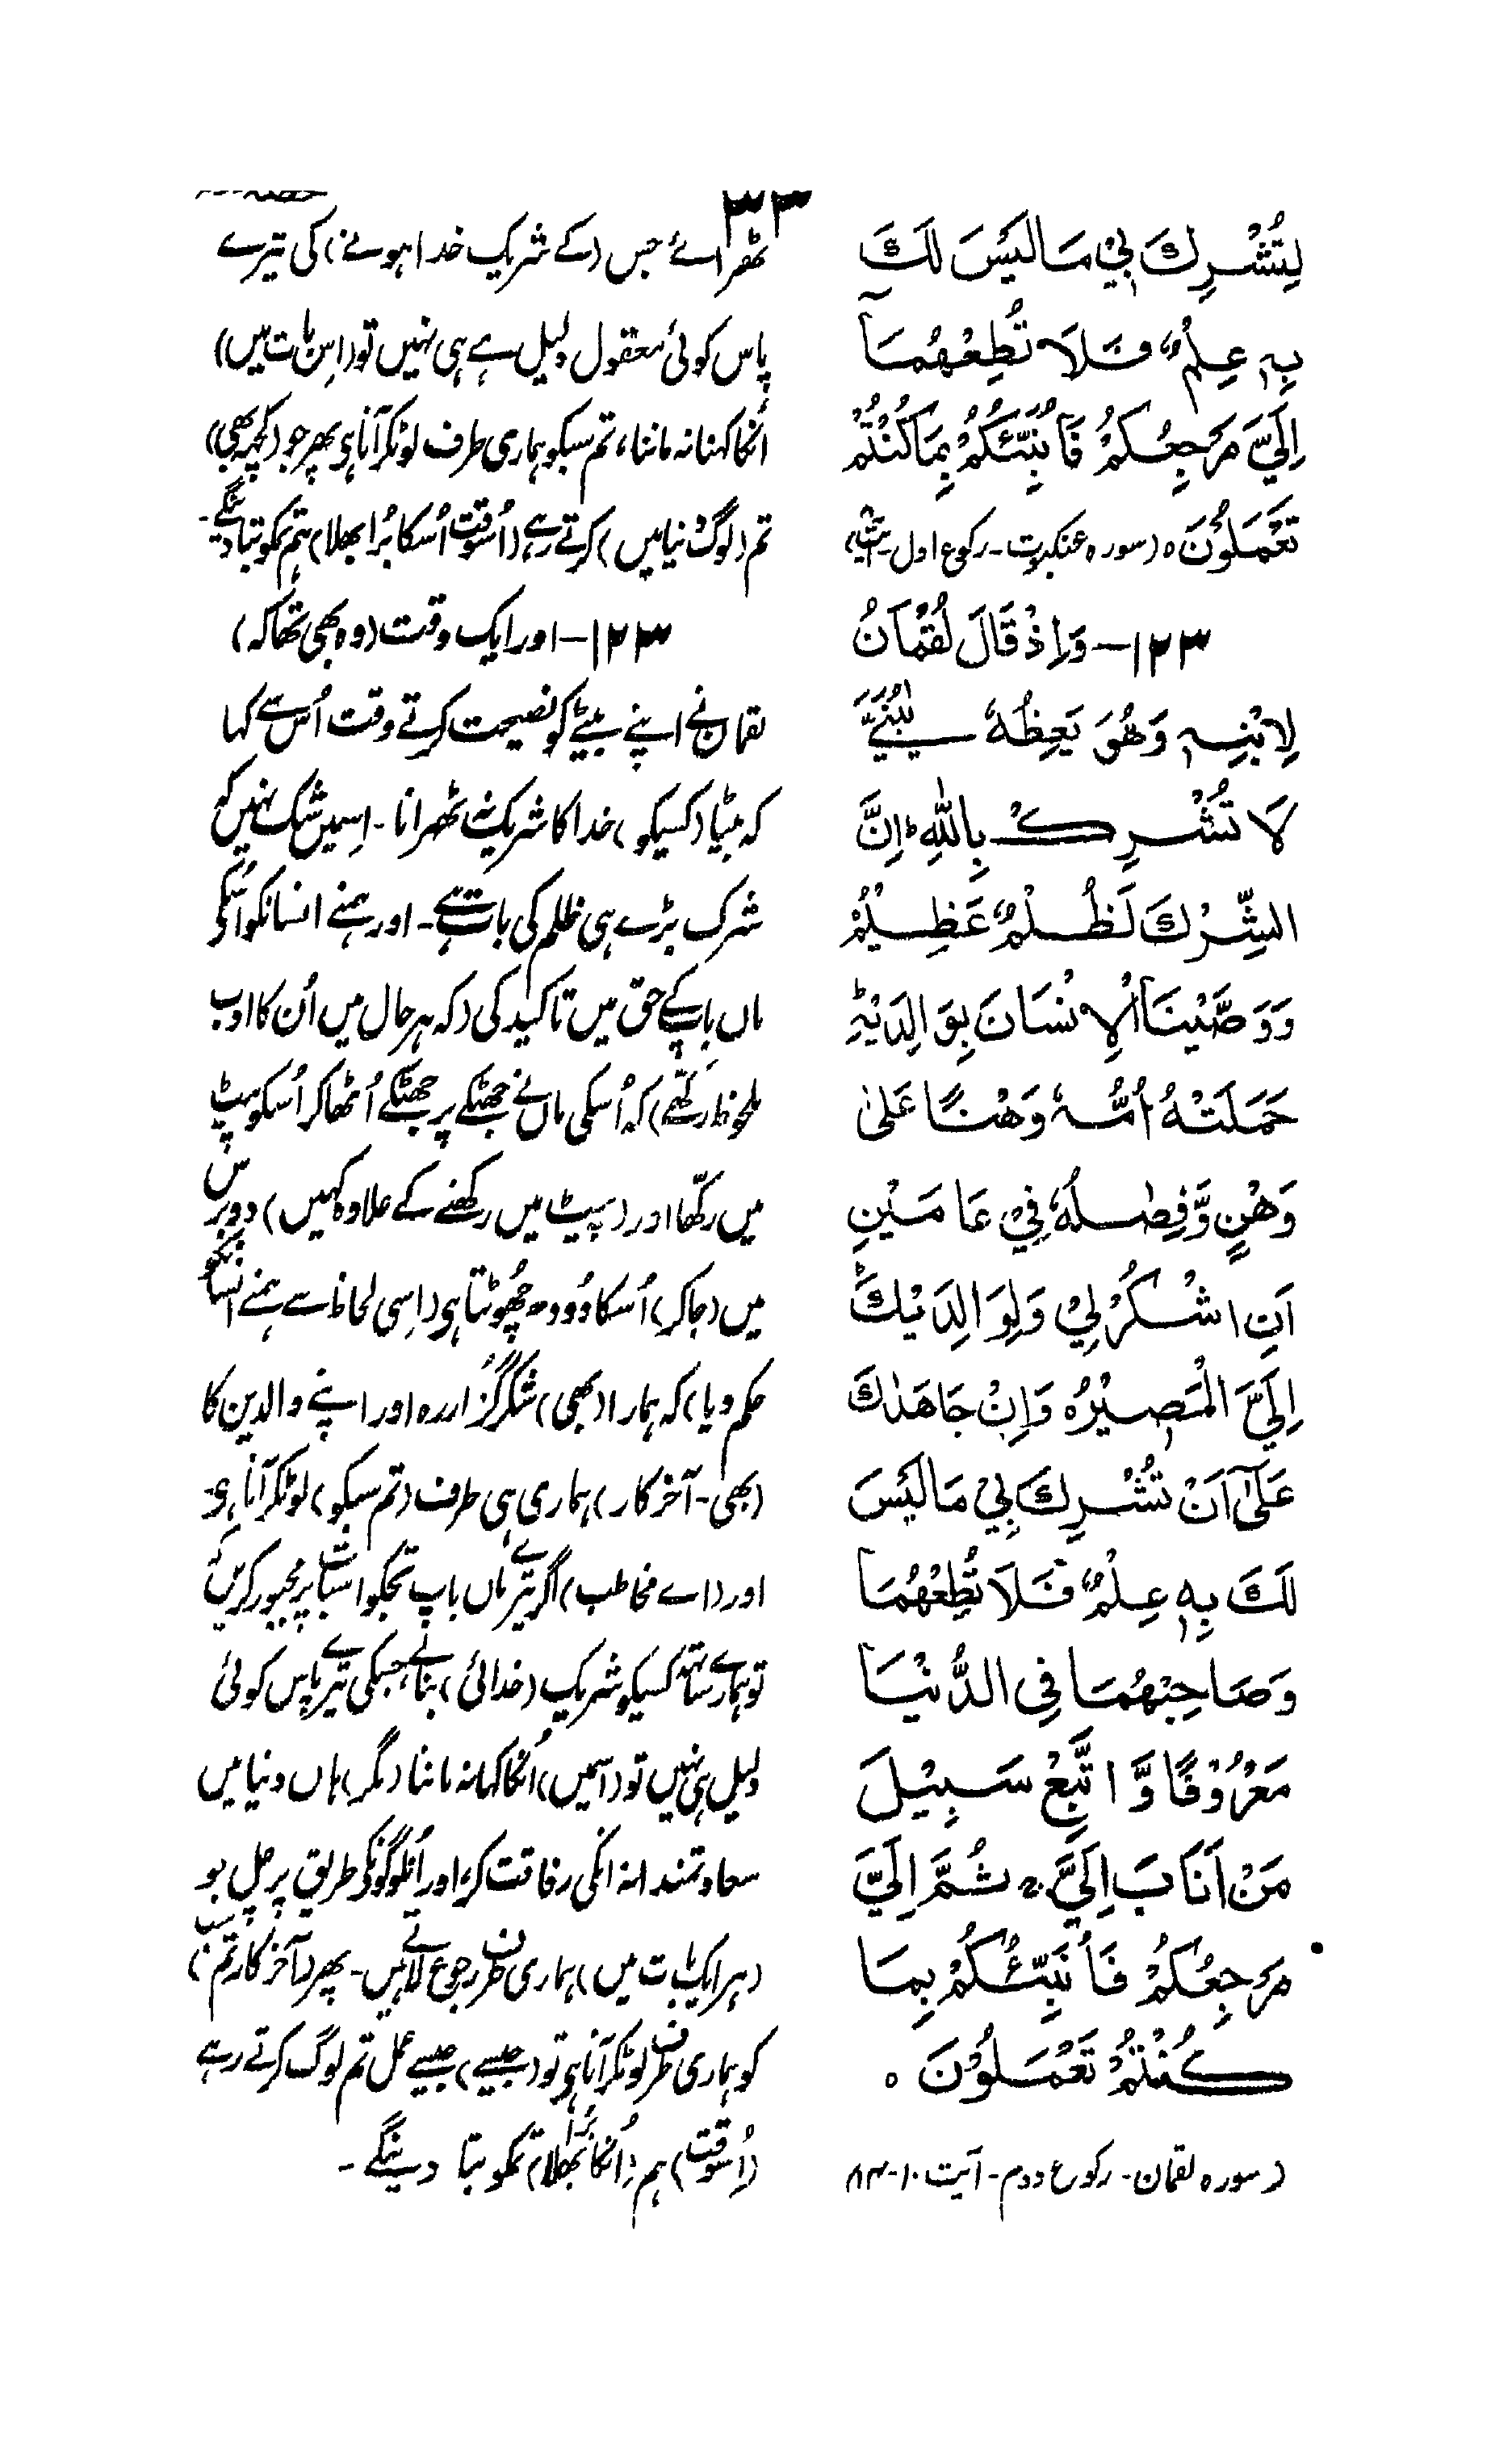 ۳۳
لِتُشْرِكَ بِيْ مَا لَيْسَ لَكَ
بِهٖ عِلْمٌ فَلَا تُطِعْهُمَآ
اِلَيَّ مَرْجِعُكُمْ فَاُنَبِّئُكُمْ بِمَا كُنْتُمْ
تَعْمَلُوْنَ ٥ (سوره عنکبوت - رکوع اول -
۱۲۳ — وَاِذْ قَالَ لُقْمَانُ
لِابْنِهٖ وَهُوَ يَعِظُهٗ يٰبُنَيَّ
لَا تُشْرِكْ بِاللّٰهِ ؕ اِنَّ
الشِّرْكَ لَظُلْمٌ عَظِيْمٌ
وَوَصَّيْنَا الْاِنْسَانَ بِوَالِدَيْهِ
حَمَلَتْهُ اُمُّهٗ وَهْنًا عَلٰى
وَهْنٍ وَّفِصٰلُهٗ فِيْ عَامَيْنِ
اَنِ اشْكُرْ لِيْ وَلِوَالِدَيْكَ
اِلَيَّ الْمَصِيْرُ ٥ وَاِنْ جَاهَدٰكَ
عَلٰٓى اَنْ تُشْرِكَ بِيْ مَا لَيْسَ
لَكَ بِهٖ عِلْمٌ فَلَا تُطِعْهُمَا
وَصَاحِبْهُمَا فِى الدُّنْيَا
مَعْرُوْفًا وَّاتَّبِعْ سَبِيْلَ
مَنْ اَنَابَ اِلَيَّ ثُمَّ اِلَيَّ
مَرْجِعُكُمْ فَاُنَبِّئُكُمْ بِمَا
كُنْتُمْ تَعْمَلُوْنَ ٥
(سوره لقمان - رکوع دوم - آیت
ٹھرائے جس (کے شریک خدا ہونے) کی تیرے
پاس کوئی معقول دلیل ہے ہی نہیں تو (اِس بات میں)
اُنکا کہنا نہ ماننا، تم سبکو ہماری طرف لوٹکر آنا ہی پھر جو (کچھ بھی)
تم (لوگ دُنیا میں) کرتے رہے (اُسوقت اُسکا بُرا بھلا) ہم تمکو بتا دینگے -
۱۲۳ — اور ایک وقت (وہ بھی تھا کہ)
لقمان نے اپنے بیٹے کو نصیحت کرتے وقت اُس سے کہا
کہ بیٹیا (کسیکو) خدا کا شریک نہ ٹھرانا - اِسمیں شک نہیں کہ
شرک بڑے ہی ظلم کی بات ہے - اور ہمنے انسانکو اُسکی
ماں باپ کے حق میں تاکید کی (کہ ہر حال میں اُن کا ادب
ملحوظ رکھے) کہ اُسکی ماں نے جھٹکے پر جھٹکے اُٹھا کر اُسکو پیٹ
میں رکھّا اور (پیٹ میں رکھنے کے علاوہ کہیں) دو برس
میں (جا کر) اُسکا دُودھ چُھوٹتا ہی (اِسی لحاظ سے ہمنے انسانکو
حکم دیا) کہ ہمارا (بھی) شکر گزار رہ اور اپنے والدین کا
(بھی - آخر کار) ہماری ہی طرف (تم سبکو) لوٹکر آنا ہی -
اور (اے مخاطب) اگر تیرے ماں باپ تجکو اسبات پر مجبور کریں کہ
تو ہمارے ساتھ کسیکو شریک (خدائی) بنائے جسکی تیرے پاس کوئی
دلیل ہی نہیں تو (اسمیں) اُنکا کہا نہ ماننا (مگر) ہاں دنیا میں
سعادتمندانہ انکی رفاقت کر، اور اُنلوگونکے طریق پر چل جو
(ہر ایک بات میں) ہماری طرف رجوع لاتے ہیں - پھر (آخر کار تم سب)
کو ہماری طرف لوٹکر آنا ہی تو (جیسے) جیسے عمل تم لوگ کرتے رہے
(اُسوقت) ہم (اُنکا بُرا بھلا) تمکو بتا دینگے -